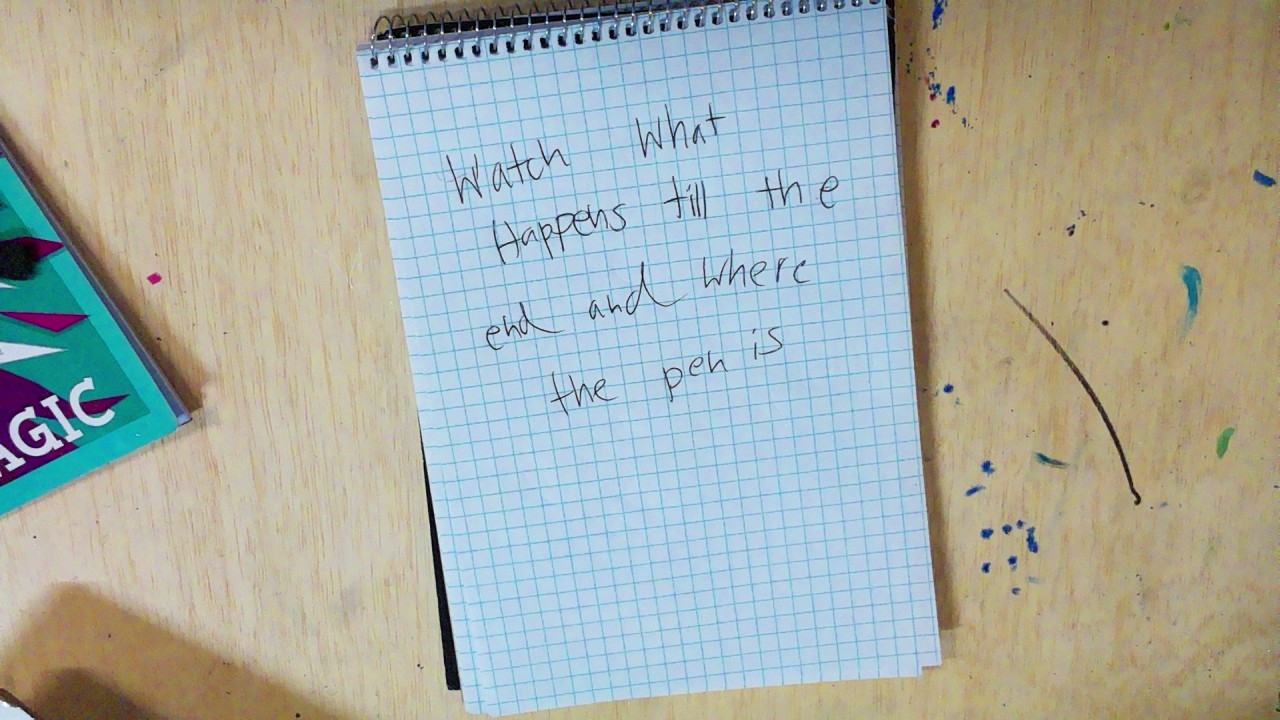 Watch What
Happens till the
end and where
the pen is
AGIC